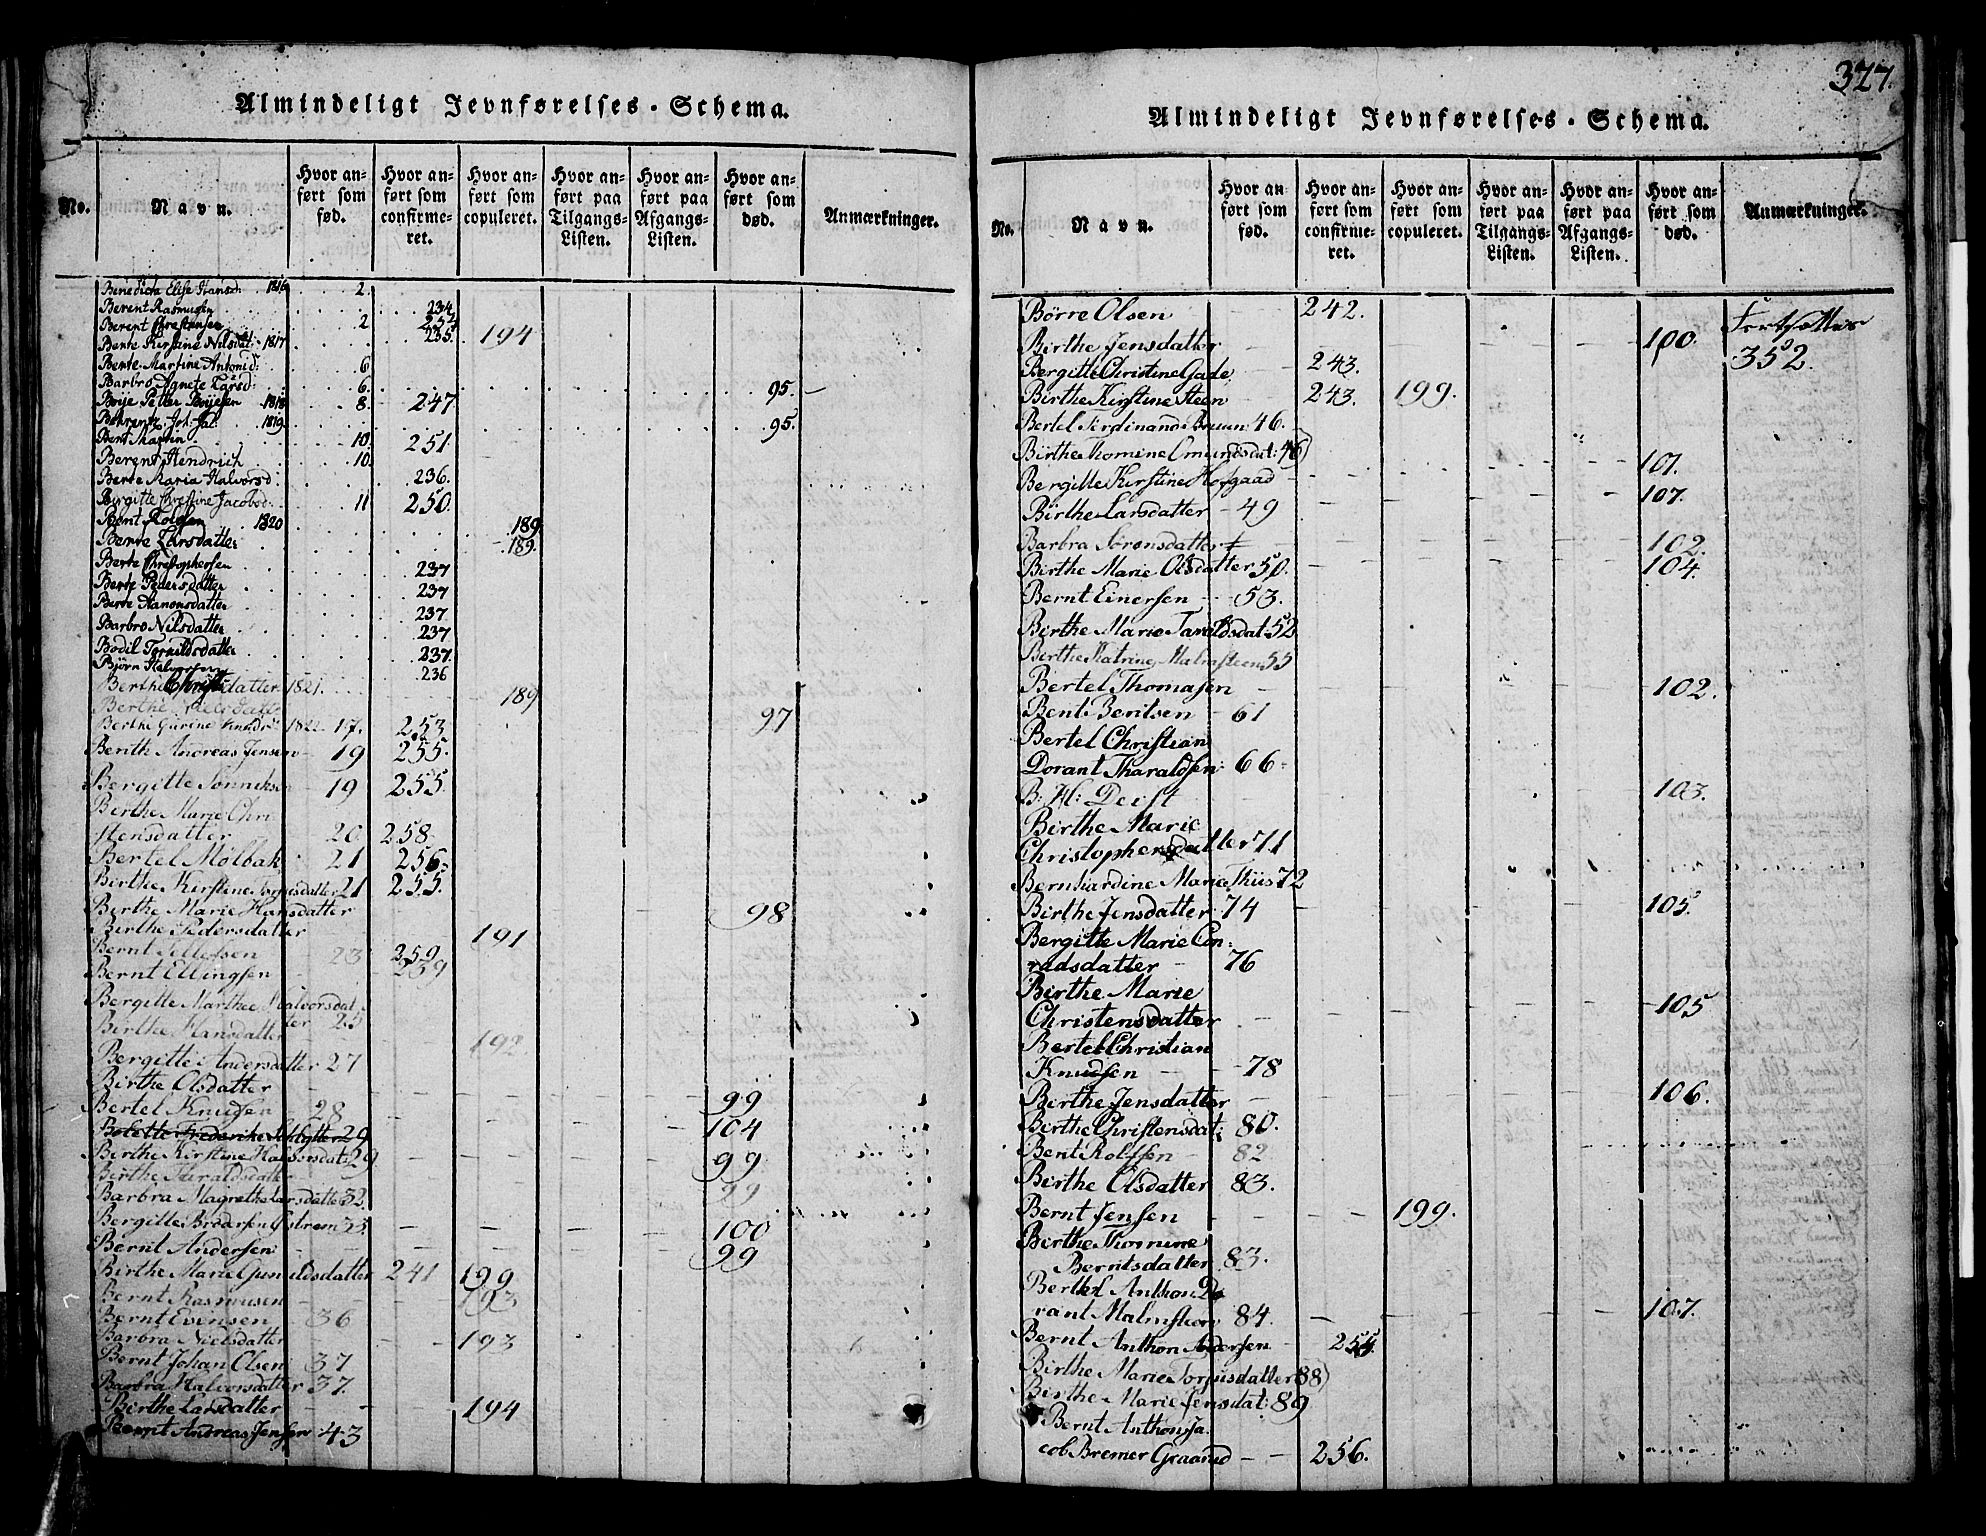 327.
Almindeligt Jevnførelses-Schema.
No.
Navn.
Hvor anført som fød.
Hvor anført som confirmeret.
Hvor anført som copuleret.
Hvor anført paa Tilgangs-Listen.
Hvor anført paa Afgangs-Listen.
Hvor anført som død.
Anmærkninger.
Benedicta Elise Hansd: 1816 2.
Berent Rasmusen 234
Berent Christensen 2 234
Berte Kirstine Nilsdat: 1817 235. 194
Berte Martine Antonid: 6
Barbro Agnete Larsd: 6. 95.
Boije Petter Boijesen 1818 8. 247
Behrentz Joh. Jac: 1819 95.
Bent Martin 10. 251
Berent Hendrich 10.
Berte Maria Halvorsd: 236.
Birgitte Christine Jacobsd: 11 250.
Bent Rolvsen 1820 189
Berte Larsdatter 189.
Berte Christophersen 237
Berte Pedersdatter 237
Berte Aanonsdatter 237.
Barbro Nilsdatter 237
Bodil Torkildsdatter 237.
Björn Halvorsen 236
Berthe Christ datter 1821.
Berthe Nielsdatter 189
Berthe Gurine Knudsd: 1822 17. 253 97
Benth Andreas Jensen 19 255.
Bergitte Sonniksen 19 255.
Berthe Marie Chri
stensdatter 20 258.
Bertel Mölbak 21 256.
Birthe Kirstine Torgusdatter 21 255.
Birthe Marie Hansdatter 98
Birthe Pedersdatter 191
Bernt Tellefsen 23 259
Bernt Ellingsen 259
Bergitte Marthee Halvorsdat
ter 25
Birthe Hansdatter 192.
Bergitte Andersdatter 27
Birthe Olsdatter 99
Bertel Knudsen 28
Bolette Frederike Schlytter 29 104
Birthe Kirstine Halvorsdat: 29 99
Birthe Tharaldsdatter 99
Barbra Magrethe Larsdatter 32.
Bergitte Brodersen Ostrem 33. 100
Bernt Andersen 99
Birthe Marie Gunnildsdatter 241 199
Bernt Rasmusen 193
Bernt Evensen 36
Barbra Nielsdatter 193
Bernt Johan Olsen 37
Barbra Halvorsdatter 37.
Birthe Larsdatter 194
Bernt Andreas Jensen 43
Almindeligt Jevnførelses-Schema.
No.
Navn.
Hvor anført som fød.
Hvor anført som confirmeret.
Hvor anført som copuleret.
Hvor anført paa Tilgangs-Listen.
Hvor anført paa Afgangs-Listen.
Hvor anført som død.
Anmærkninger.
Börre Olsen 242.
Birthe Jensdatter 100. Fortsættes
352.
Bergitte Christine Gade 243.
Birthe Kirstine Steen 243. 199.
Bertel Ferdinand Bruun 46.
Birthe Thomine Omundsdat: 46) 107.
Bergitte Kirstine Hofgaad 107.
Birthe Larsdatter 49
Barbra Sörensdatter 102.
Birthe Marie Olsdatter 50. 104.
Bernt Einersen 53.
Birthe Marie Taraldsdat: 52
Berthe Katrine Malmsteen 55
Bertel Thomasen 102.
Bent Bentsen 61
Bertel Christian
Dorant Tharaldsen 66
B: H: Deist 103.
Birthe Marie
Christophersdatter 71
Bernhardine Marie Thiis 72
Birthe Jensdatter 74 105.
Bergitte Marie Con:
radsdatter 76
Birthe Marie
Christensdatter 105
Bertel Christian
Knudsen 78
Birthe Jensdatter 106.
Berthe Christensdat: 80.
Bent Rolfsen 82
Birthe Olsdatter 83.
Bernt Jensen 199.
Birthe Thomine
Berntsdatter 83.
Berthel Anthon Do
rant Malmsteen 84. 107.
Bernt Anthon Andersen 254.
Birthe Marie Torgusdatter 88)
Birthe Marie Jensdat: 89
Bernt Anthon Ja
cob Bremer Graarud 256.